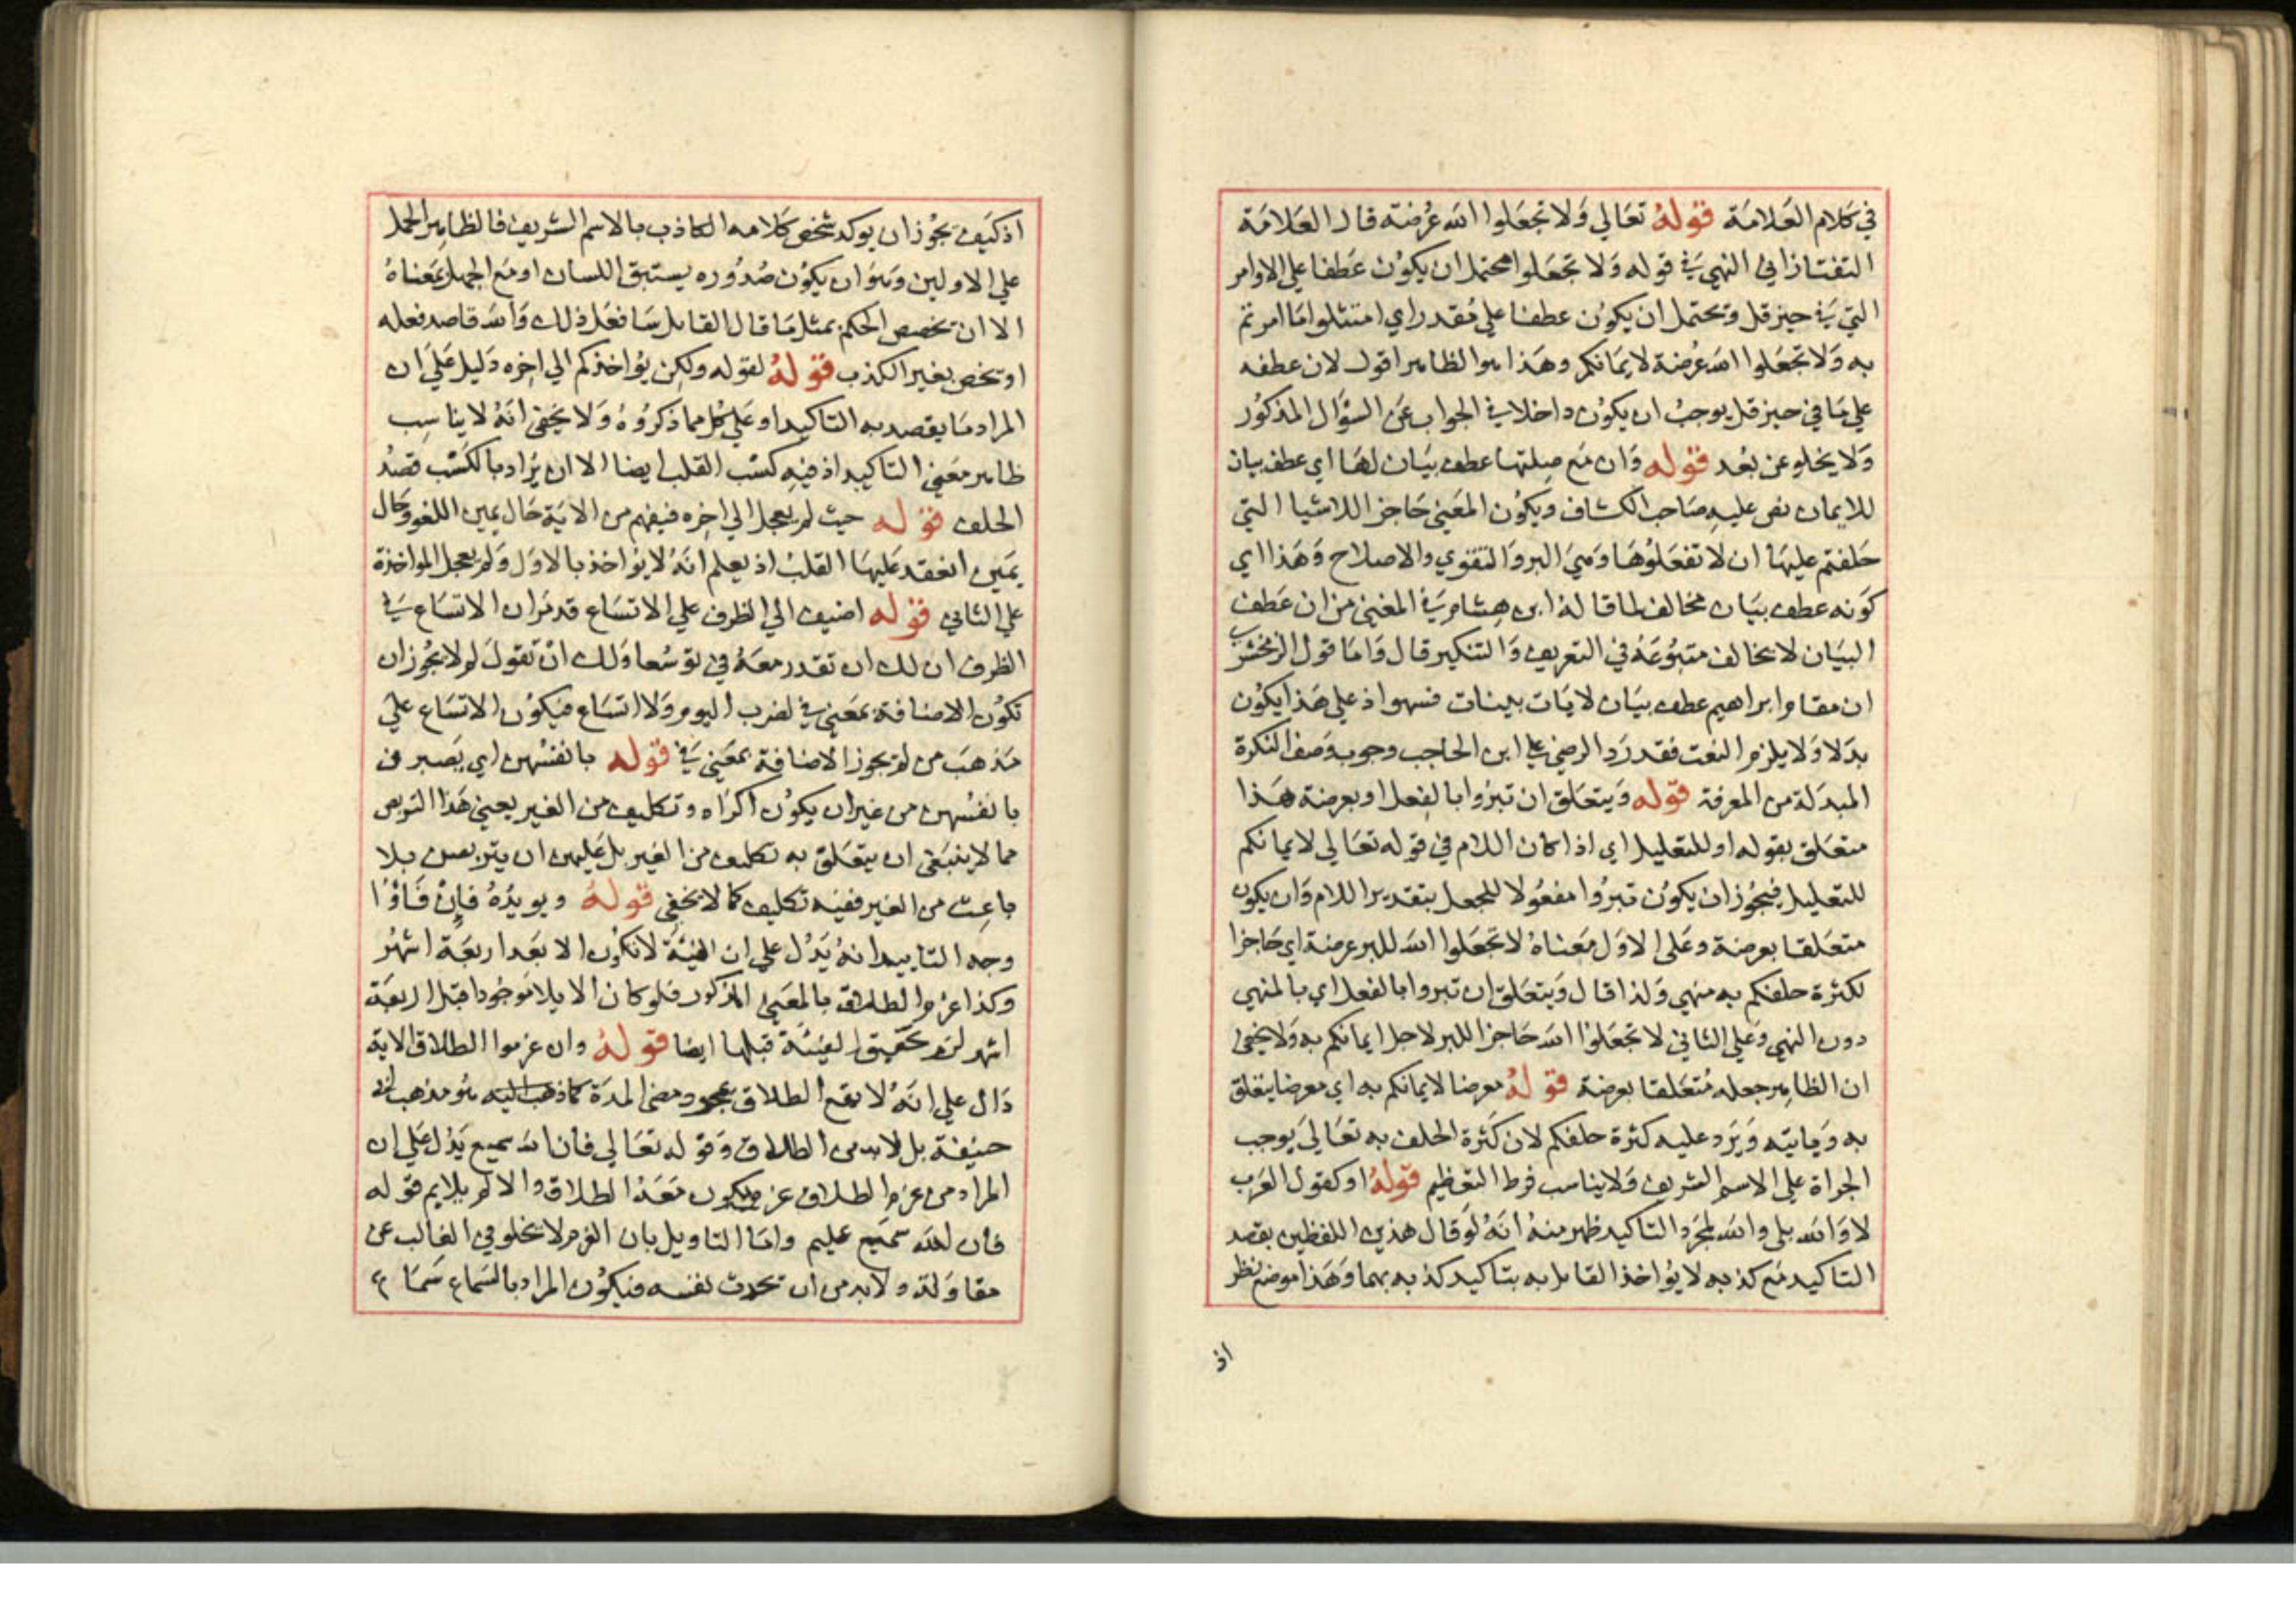 في كلام العلامة قوله تعالي ولا تجعلوا الله عرضة قال العلامة
التفتازاني النهي في قوله ولا تجعلوا محتمل ان يكون عطفا علي الاوامر
التي في حيز قل ويحتمل ان يكون عطفا علي مقدر اي امتثلوا ما امرتم
به ولا تجعلوا الله عرضة لايمانكم وهذا هو الظاهر اقول لان عطفه
علي ما في حيز قل يوجب ان يكون داخلا في الجواب عن السؤال المذكور
ولا يخلو عن بعد قوله وان مع صلتها عطف بيان لها اي عطف بيان
للايمان نص عليه صاحب الكشاف ويكون المعني حاجزا للاشيا التي
حلفتم عليها ان لا تفعلوها وهي البر والتقوي والاصلاح وهذا اي
كونه عطف بيان مخالف لما قاله ابن هشام في المغني من ان عطف
البيان لا يخالف متبوعه في التعريف والتنكير قال واما قول الزمخشري
ان مقام ابراهيم عطف بيان لايات بينات فسهو اذ علي هذا يكون
بدلا ولا يلزم النعت فقد رد الرضي علي ابن الحاجب وجوب وصف النكرة
المبدلة من المعرفة قوله ويتعلق ان تبروا بالفعل او بعرضة هذا
متعلق بقوله او للتعليل اي اذا كان اللام في قوله تعالي لايمانكم
للتعليل فيجوز ان يكون تبروا مفعولا للجعل بتقدير اللام وان يكون
متعلقا بعرضة وعلي الاول معناه لا تجعلوا الله للبر عرضة اي حاجزا
لكثرة حلفكم به منهي ولذا قال ويتعلق ان تبروا بالفعل اي بالمنهي
دون النهي وعلي الثاني لا تجعلوا الله حاجزا للبر لاجل ايمانكم به ولا يخفي
ان الظاهر جعله متعلقا بعرضة قوله معرضا لايمانكم به اي معرضا يتعلق
به وياتيه ويرد عليه كثرة حلفكم لان كثرة الحلف به تعالي يوجب
الجراة علي الاسم الشريف ولا يناسب فرط التعظيم قوله او كقول العرب
لا والله بلي والله لمجرد التاكيد ظهر منه انه لو قال هذين اللفظين بقصد
التاكيد مع كذبه لا يؤاخذ القايل به بتاكيد كذبه بهما وهذا موضع نظر
اذ
اذ كيف يجوز ان يوكد شخص كلامه الكاذب بالاسم الشريف فالظاهر الحمل
علي الاولين وهو ان يكون صدوره يستبق اللسان او مع الجهل بمعناه
الا ان تخصص الحكم بمثل ما قال القايل سافعل ذلك والله قاصد فعله
او تخص بغير الكذب قوله لقوله ولكن يؤاخذكم الي اخره دليل علي ان
المراد ما يقصد به التاكيد او علي كل مما ذكروه ولا يخفي انه لا يناسب
ظاهر معني التاكيد اذ فيه كسب القلب ايضا الا ان يراد بالكسب قصد
الحلف قوله حيث لم يعجل الي اخره فيفهم من الاية حال يمين اللغو وحال
يمين انعقد عليها القلب اذ يعلم انه لا يؤاخذ بالاول ولم يعجل المواخذة
علي الثاني قوله اضيف الي الظرف علي الاتساع قد مر ان الاتساع في
الظرف ان لك ان تقدر معه في توسعا ولك ان تقول لم لا يجوز ان
تكون الاضافة بمعني في لضرب اليوم ولا اتساع فيكون الاتساع علي
مذهب من لم يجوز الاضافة بمعني في قوله بانفسهن اي يصبرن
بانفسهن من غير ان يكون اكراه وتكليف من الغير يعني هذا التربص
مما لا ينبغي ان يتعلق به تكليف من الغير بل عليهن ان يتربصن بلا
باعث من الغير ففيه تكليف كما لا يخفي قوله ويويده فان فاؤا
وجه التاييد انه يدل علي ان الفيئة لا تكون الا بعد اربعة اشهر
وكذا عزم الطلاق بالمعني المذكور فلو كان الايلا موجودا قبل اربعة
اشهر لزم تحقيق الفيئة قبلها ايضا قوله وان عزموا الطلاق الاية
دال علي انه لا يقع الطلاق بمجرد مضي المدة كما ذهب اليه هو مذهب
حنيفة بل لا بد من الطلاق وقوله تعالي فان الله سميع يدل علي ان
المراد من عزم الطلاق عزم يكون معه الطلاق والا لم يلايم قوله
فان الله سميع عليم واما التاويل بان العزم لا يخلو في الغالب عن
مقاولة ولا بد من ان تحدث نفسه فيكون المراد بالسماع سماع